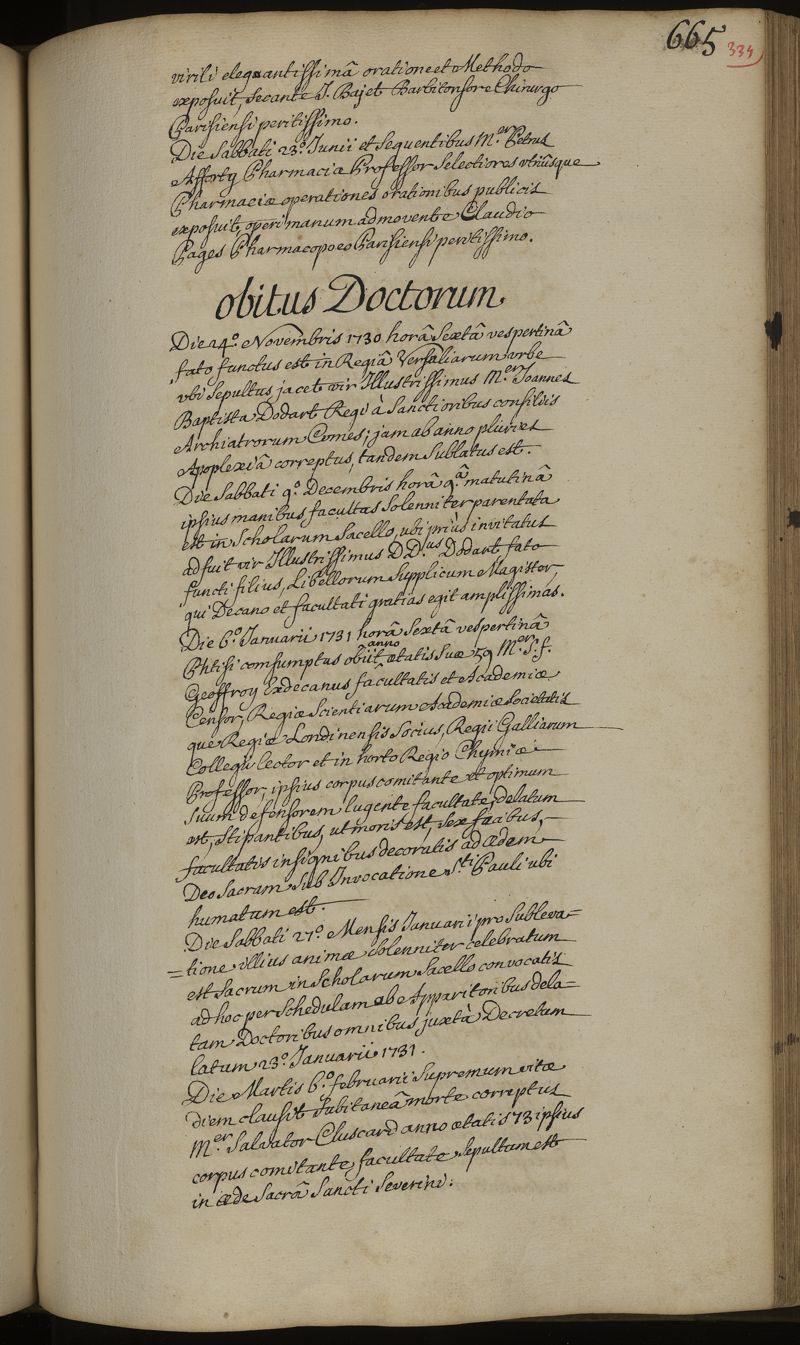 665
334
virili eleguantissimâ oratione et Methodo
exposuit, secante J. Bajet Barbitonsore Chirurgo
Parisiensi peritissimo.
Die Sabbati 23.º Junii et sequentibus M.er Petrus
Afforty Pharmaciæ Professor selectiores utriusque
Pharmaciæ operationes orationibus publicis
exposuit, operi manum admovente Claudio
Pages Pharmacopoeo Parisiensi peritissimo.
obitus Doctorum.
Die 24.º Novembris 1730 horâ sextâ vespertinâ
fato functus est in Regiâ Versaliarum urbe
ubi sepultus jacet vir Illustrissimus M.er Joannes
Baptista Dodart Regi à Sanctioribus consiliis
Archiatrorum Comes; jam ab anno pluries
Apoplexiâ correptus, tandem sublatus est.
Die Sabbati 9.º Decembris horâ 9.â matutinâ
ipsius manibus facultas solenniter parentata
est in Scholarum Sacello, ubi priùs invitatus
adfuit vir Illustrissimus D D.us Dodart fato
functi filius, Libellorum Supplicum Magister,
qui Decano et facultati gratias egit amplissimas.
Die 6.º Januarii 1731 horâ sextâ vespertinâ
Phtisi comsumptus obiit anno ætatis suæ 59 M.er S. f.
Geoffroy Exdecanus facultatis et Academiæ
Censor, Regiæ Scientiarum Academiæ Societatis
que Regiæ Londinensis Socius, Regii Galliarum
Collegii Lector et in horto Regio Chymiæ
Professor, ipsius corpus comitante et optimum
suum defensorem lugente facultate, delatum
est, stipantibus, ut moris est, sex facibus,
facultatis insignibus decoratis ad ædem
Deo Sacram sub Invocatione S.ti Pauli ubi
humatum est.
Die Sabbati 27.º Mensis Januarii pro subleva=
=tione illius animæ solenniter celebratum
est sacrum in Scholarum Sacello convocatis
ad hoc per schedulam ab Apparitoribus dela=
tam Doctoribus omnibus juxtà Decretum
latum 23.º Januarii 1731.
Die Martis 6.º februarii supremum vitæ
diem clausit subitaneâ morte correptus
M.er Salvator Cluscard anno ætatis 73 ipsius
corpus comitante facultate sepultum est
in æde sacrâ Sancti Severini.